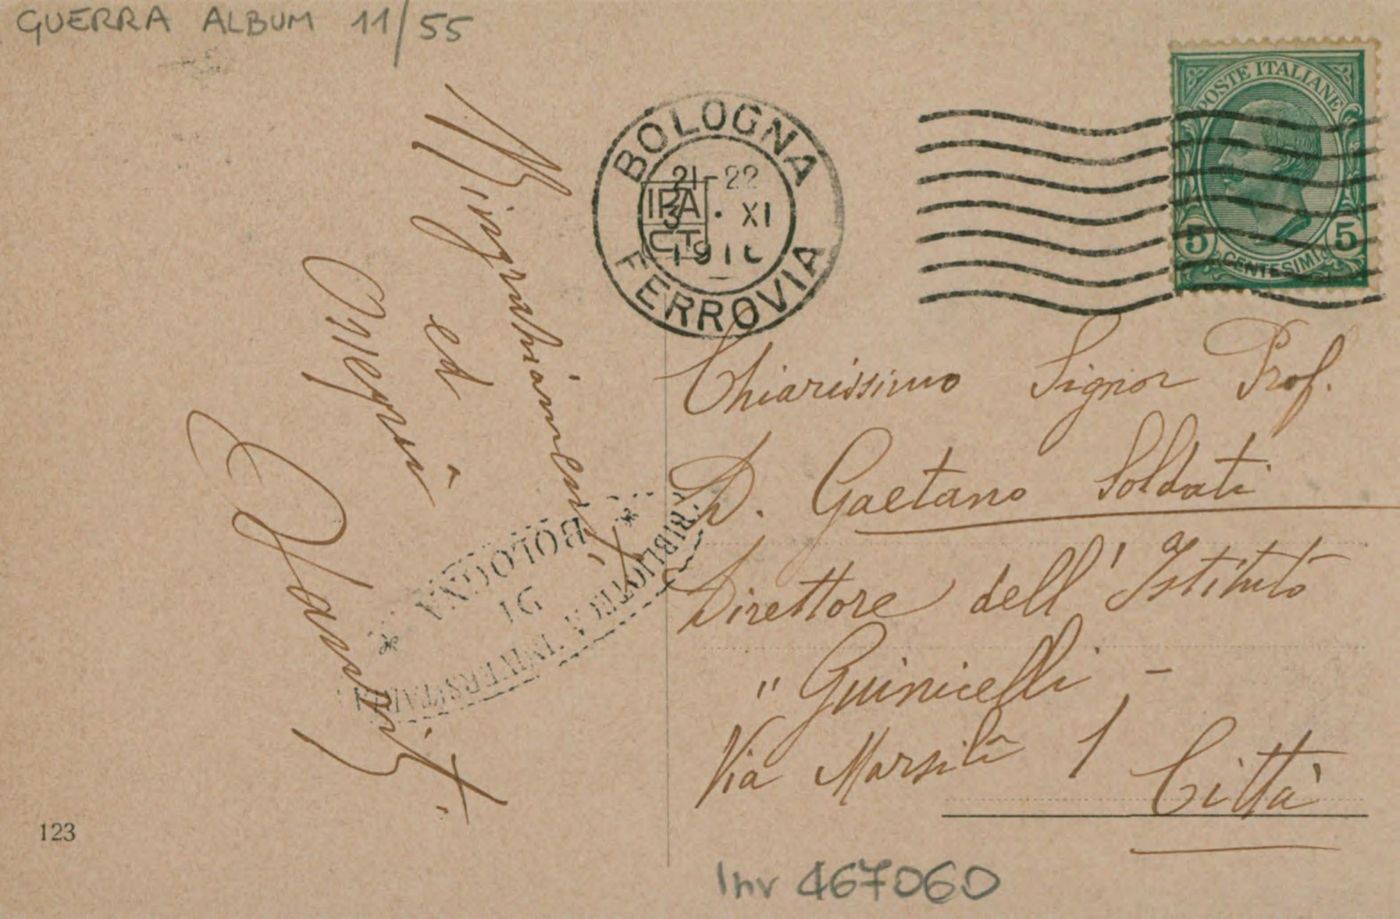 GUERRA ALBUM 11/55
Ringraziamenti
ed
Ossequi
BOLOGNA
21-22
3 · XI
FERROVIA
POSTE ITALIANE
5 5
CENTESIMI
Chiarissimo Signor Prof.
D. Gaetano Soldati
Direttore dell' Istituto
"Guinicelli -
Via Marsili 1
Città
BIBLIOTECA UNIVERSITARIA
DI
* BOLOGNA *
123
Inv 467060